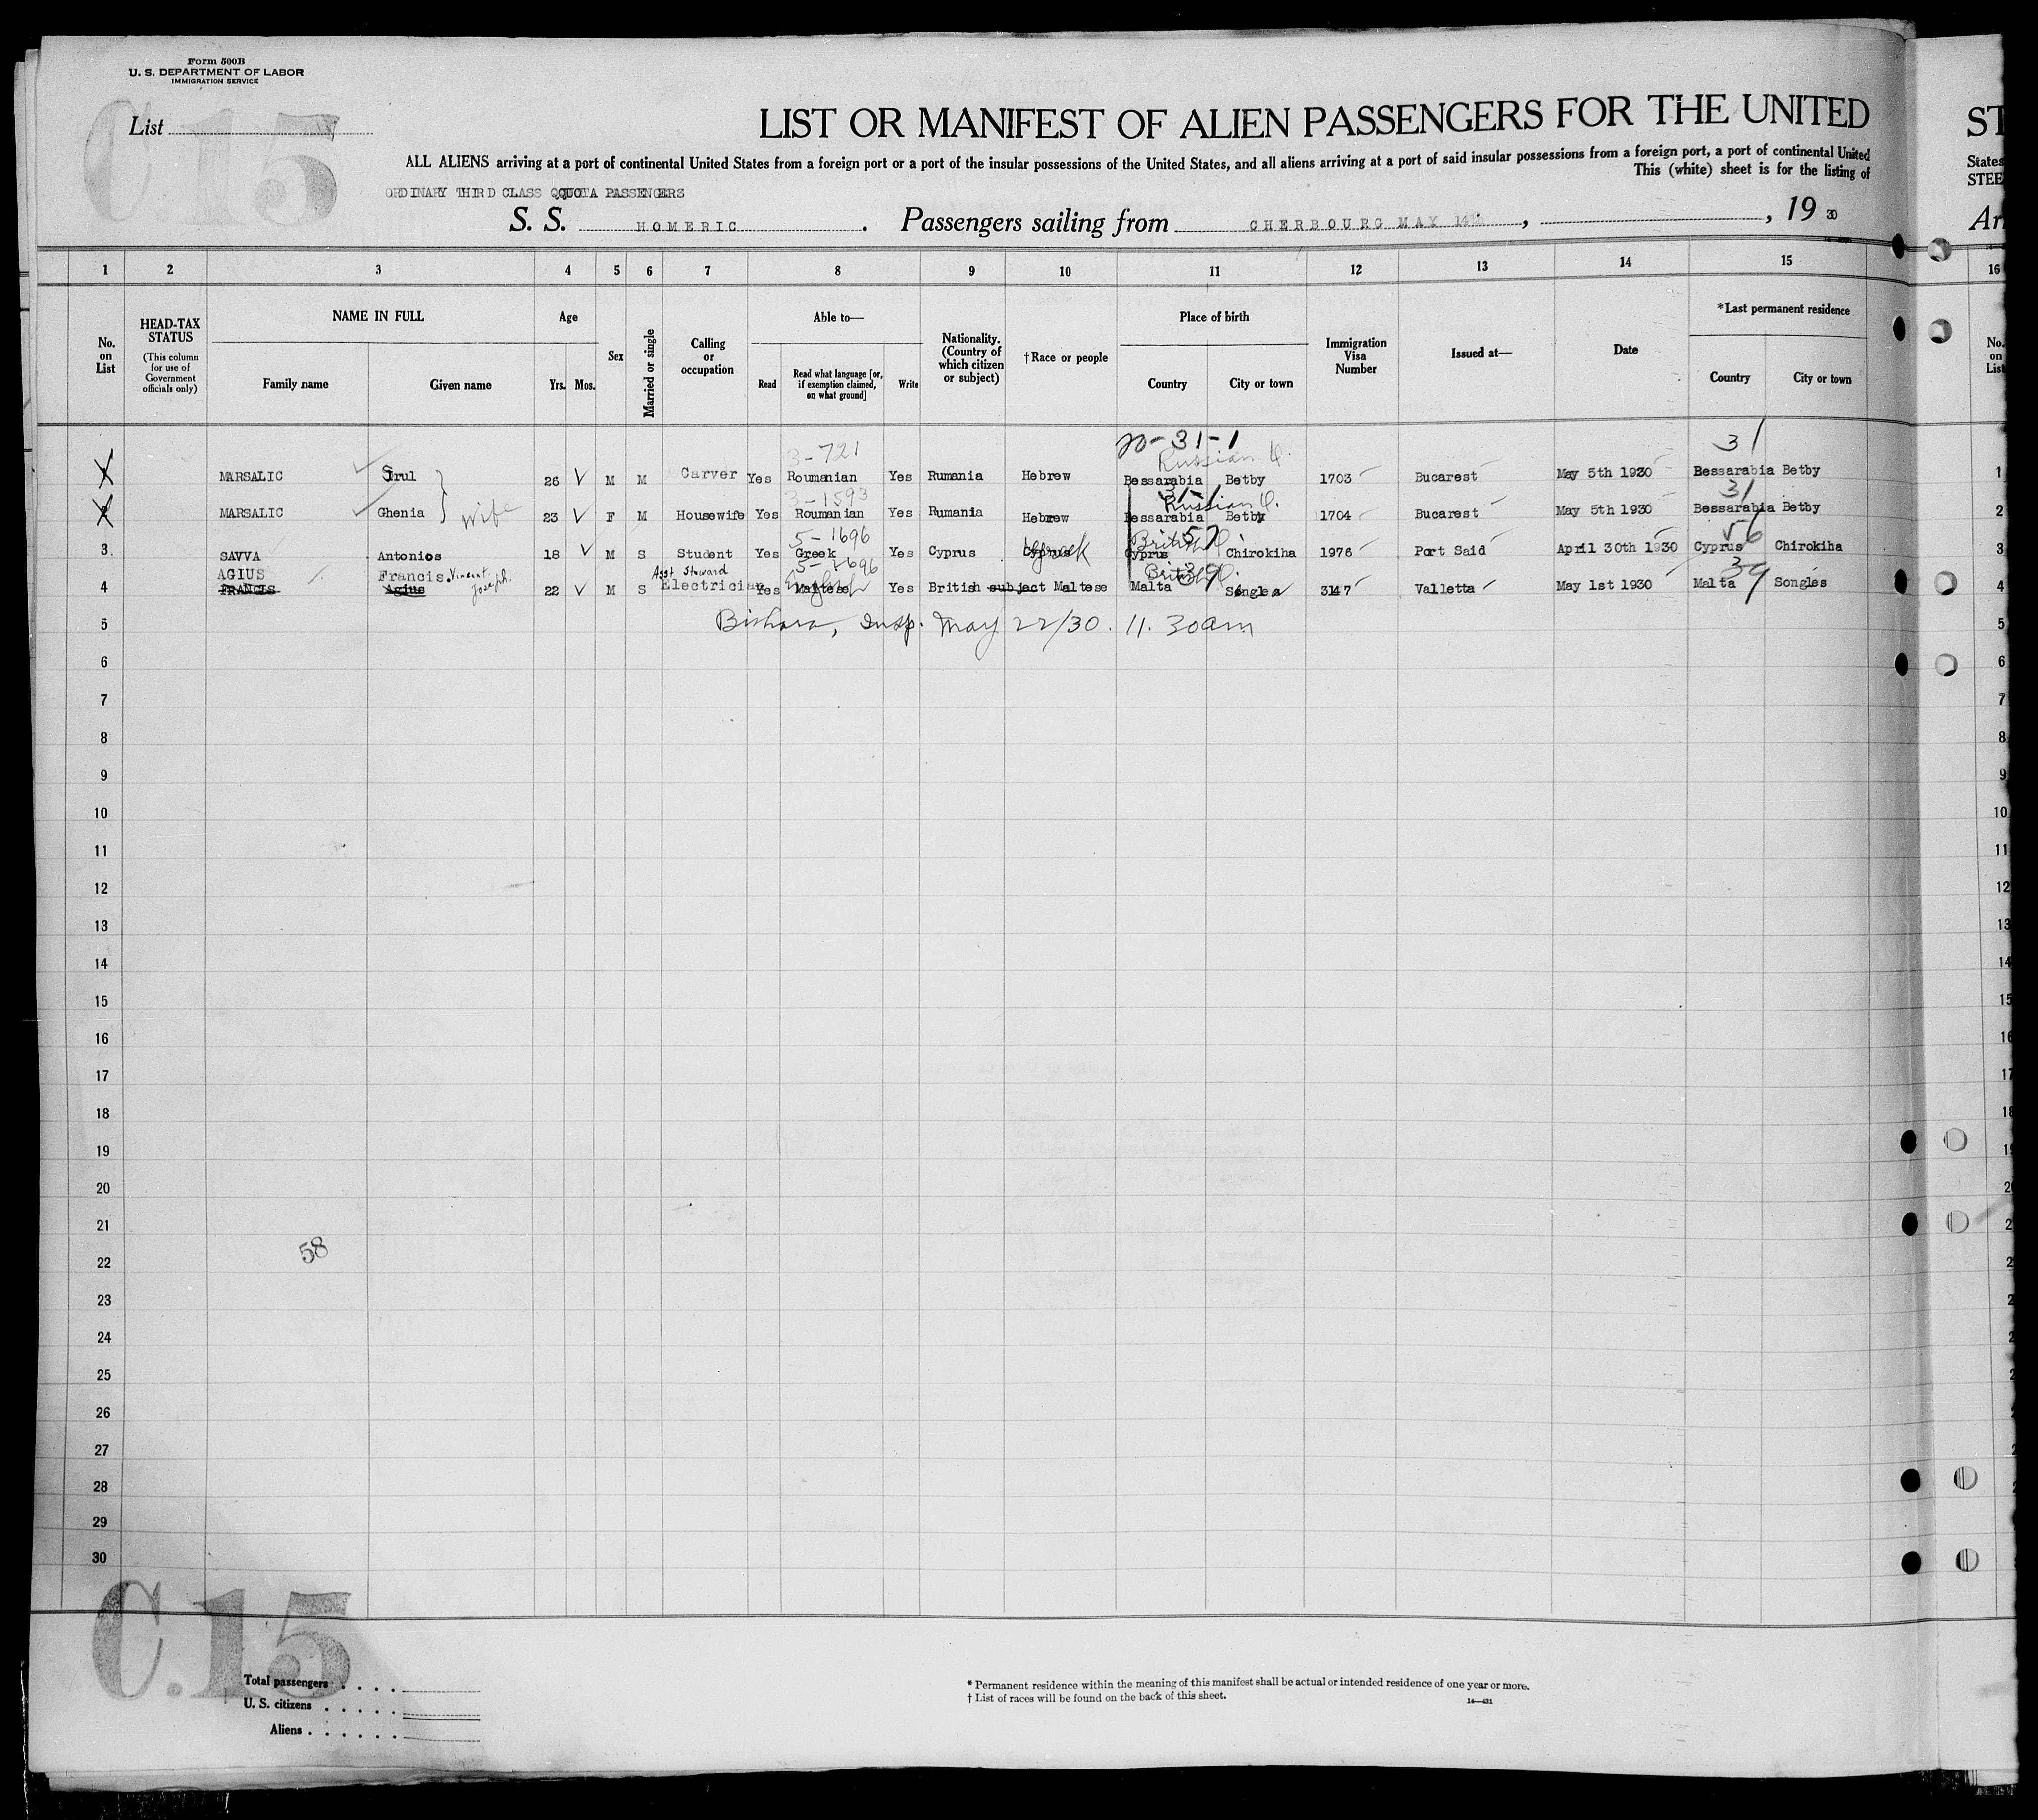 Form 500B
U. S. DEPARTMENT OF LABOR
IMMIGRATION SERVICE
C.15
List
LIST OR MANIFEST OF ALIEN PASSENGERS FOR THE UNITED
ST
ALL ALIENS arriving at a port of continental United States from a foreign port or a port of the insular possessions of the United States, and all aliens arriving at a port of said insular possessions from a foreign port, a port of continental United
States
This (white) sheet is for the listing of
STEE
ORDINARY THIRD CLASS QUOTA PASSENGERS
S. S. HOMERIC. Passengers sailing from CHERBOURG MAY 14, , 19 30
Ar
1 2 3 4 5 6 7 8 9 10 11 12 13 14 15 16
No. on List
HEAD-TAX STATUS (This column for use of Government officials only)
NAME IN FULL
Family name Given name
Age
Yrs. Mos.
Sex
Married or single
Calling or occupation
Able to—
Read Read what language [or, if exemption claimed, on what ground] Write
Nationality. (Country of which citizen or subject)
†Race or people
Place of birth
Country City or town
Immigration Visa Number
Issued at—
Date
*Last permanent residence
Country City or town
No. on List
3-721 20-31-1 31
Russian Q.
1 MARSALIC Srul 26 V M M Carver Yes Roumanian Yes Rumania Hebrew Bessarabia Betby 1703 Bucarest May 5th 1930 Bessarabia Betby 1
3-1593 31-1 Russian Q. 31
2 MARSALIC Ghenia wife 23 V F M Housewife Yes Roumanian Yes Rumania Hebrew Bessarabia Betby 1704 Bucarest May 5th 1930 Bessarabia Betby 2
5-1696 British Q. 57 56
3 SAVVA Antonios 18 V M S Student Yes Greek Yes Cyprus Cyprus Greek Cyprus Chirokiha 1976 Port Said April 30th 1930 Cyprus Chirokiha 3
AGIUS Francis. Vincent Joseph. Asst Steward 5-1696 British Q. 39 39
4 FRANCIS Agius 22 V M S Electrician Yes Maltese English Yes British subject Maltese Malta Senglea 3147 Valletta May 1st 1930 Malta Songles 4
5 Bishara, Insp. May 22/30. 11.30am 5
6 6
7 7
8 8
9 9
10 10
11 11
12 12
13 13
14 14
15 15
16 16
17 17
18 18
19 19
20 20
21 2
58
22 2
23 2
24 2
25 2
26 2
27 2
28 2
29
30
C.15
Total passengers . . . .
U. S. citizens . . . . .
Aliens . . . . . .
* Permanent residence within the meaning of this manifest shall be actual or intended residence of one year or more.
† List of races will be found on the back of this sheet.
14—431